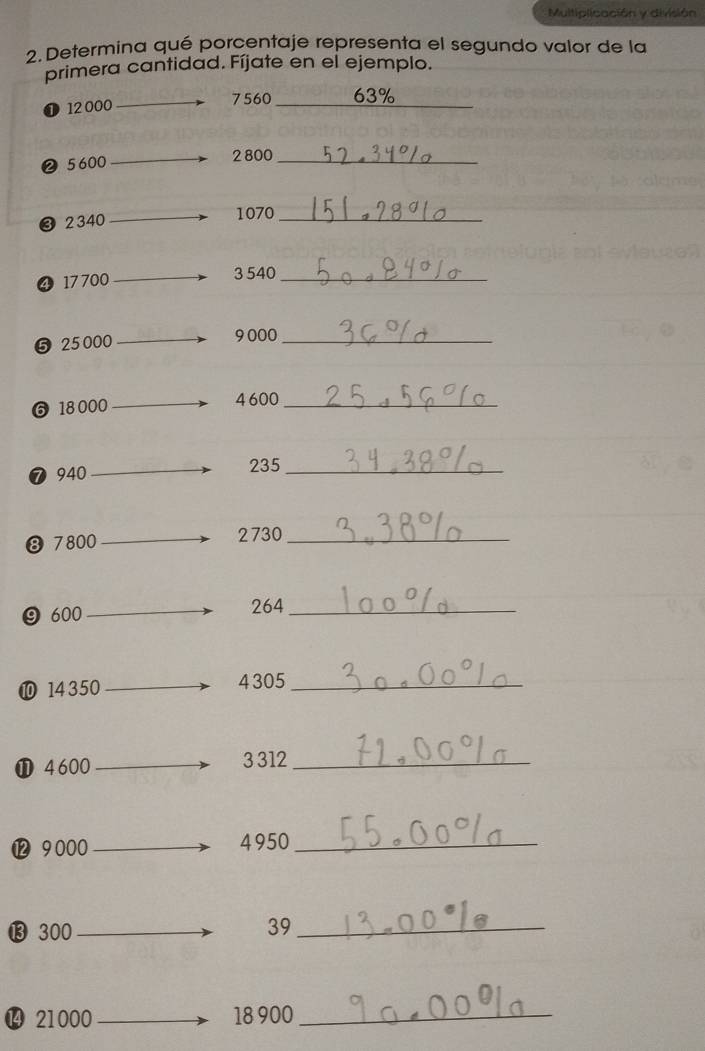 Multiplicación y división
2. Determina qué porcentaje representa el segundo valor de la
primera cantidad. Fíjate en el ejemplo.
1 12 000 → 7 560 63%
2 5 600 → 2 800 52.34%
3 2 340 → 1070 151.28%
4 17 700 → 3 540 50.84%
5 25 000 → 9 000 36%
6 18 000 → 4 600 25.56%
7 940 → 235 34.38%
8 7 800 → 2 730 3.38%
9 600 → 264 100%
10 14 350 → 4 305 30.00%
11 4 600 → 3 312 72.00%
12 9 000 → 4 950 55.00%
13 300 → 39 13.00%
14 21 000 → 18 900 90.00%